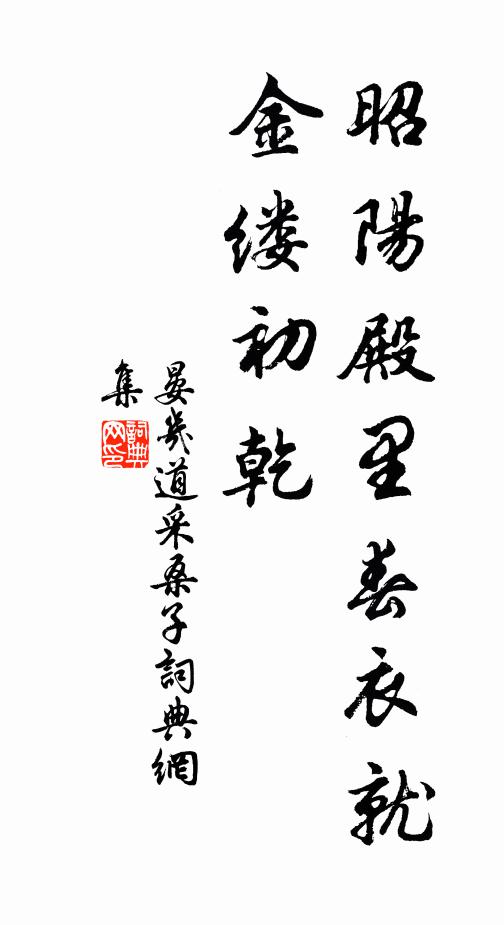 昭陽殿里春衣就
金缕初乾
晏幾道采桑子詞典網
集
詞典網印